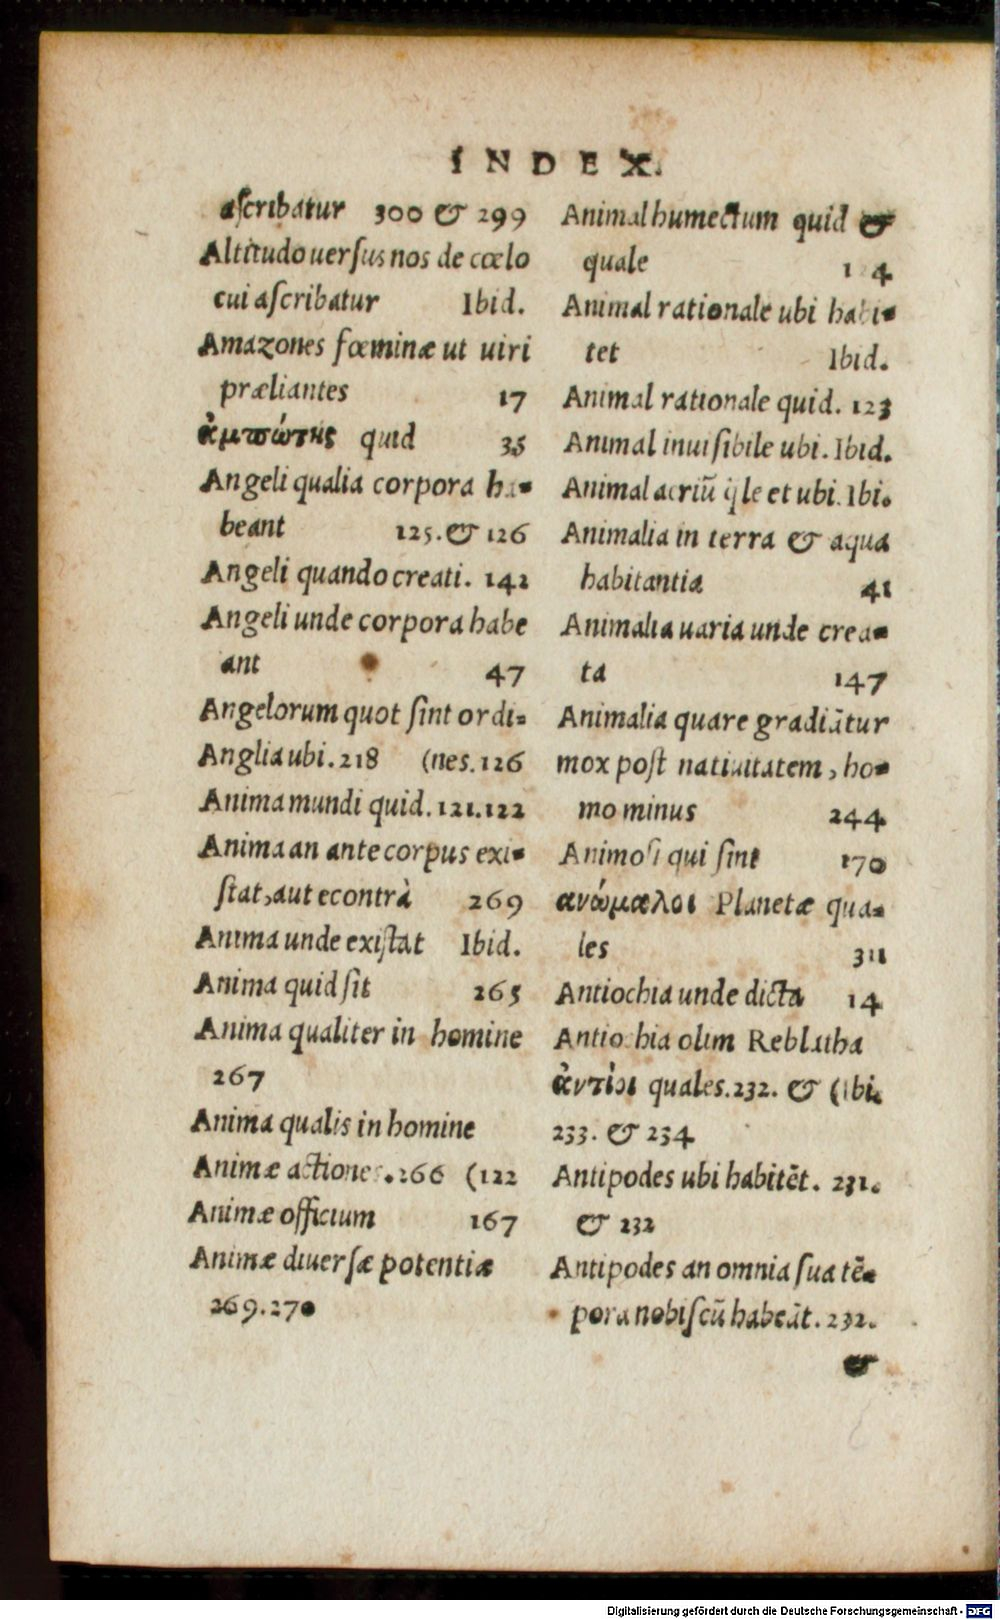 INDEX.
aſcribatur 300 & 299
Altitudo uerſus nos de cœlo
cui aſcribatur Ibid.
Amazones fœminæ ut uiri
præliantes 17
ἀμπώτης quid 35
Angeli qualia corpora ha-
beant 125. & 126
Angeli quando creati. 142
Angeli unde corpora habe
ant 47
Angelorum quot ſint ordi-
Anglia ubi. 218 (nes. 126
Anima mundi quid. 121.122
Anima an ante corpus exi-
ſtat, aut econtrà 269
Anima unde exiſtat Ibid.
Anima quid ſit 265
Anima qualiter in homine
267
Anima qualis in homine
Animæ actiones. 266 (122
Animæ officium 167
Animæ diuerſæ potentiæ
269.270
Animal humectum quid &
quale
Animal rationale ubi habi-
tet Ibid.
Animal rationale quid. 123
Animal inuiſibile ubi. Ibid.
Animal aeriū q̈le et ubi. Ibi.
Animalia in terra & aqua
habitantia 41
Animalia uaria unde crea-
ta 147
Animalia quare gradiūtur
mox poſt natiuitatem, ho-
mo minus 244
Animoſi qui ſint 170
ανώμαλοι Planetæ qua-
les 311
Antiochia unde dicta 14
Antiochia olim Reblatha
ἀντίοι quales. 232. & (Ibi.
233. & 234
Antipodes ubi habitēt. 231.
& 232
Antipodes an omnia ſua tē-
pora nobiſcū habeāt. 232.
&
Digitalisierung gefördert durch die Deutsche Forschungsgemeinschaft - DFG